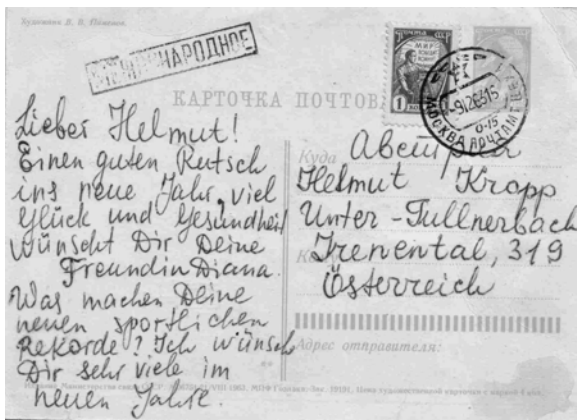 Художник В. В. Пименов
МЕЖДУНАРОДНОЕ
МИР
1
МОСКВА ПОЧТАМТ
КАРТОЧКА ПОЧТОВАЯ
Lieber Helmut!
Einen guten Rutsch
ins neue Jahr, viel
Glück und Gesundheit
wünscht Dir Deine
Freundin Diana.
Was machen Deine
neuen sportlichen
Rekorde? Ich wünsch
Dir sehr viele im
neuen Jahre.
Куда Австрия
Helmut Kropp
Unter-Tullnerbach
Irenental, 319
Österreich
Адрес отправителя:
Министерства связи СССР